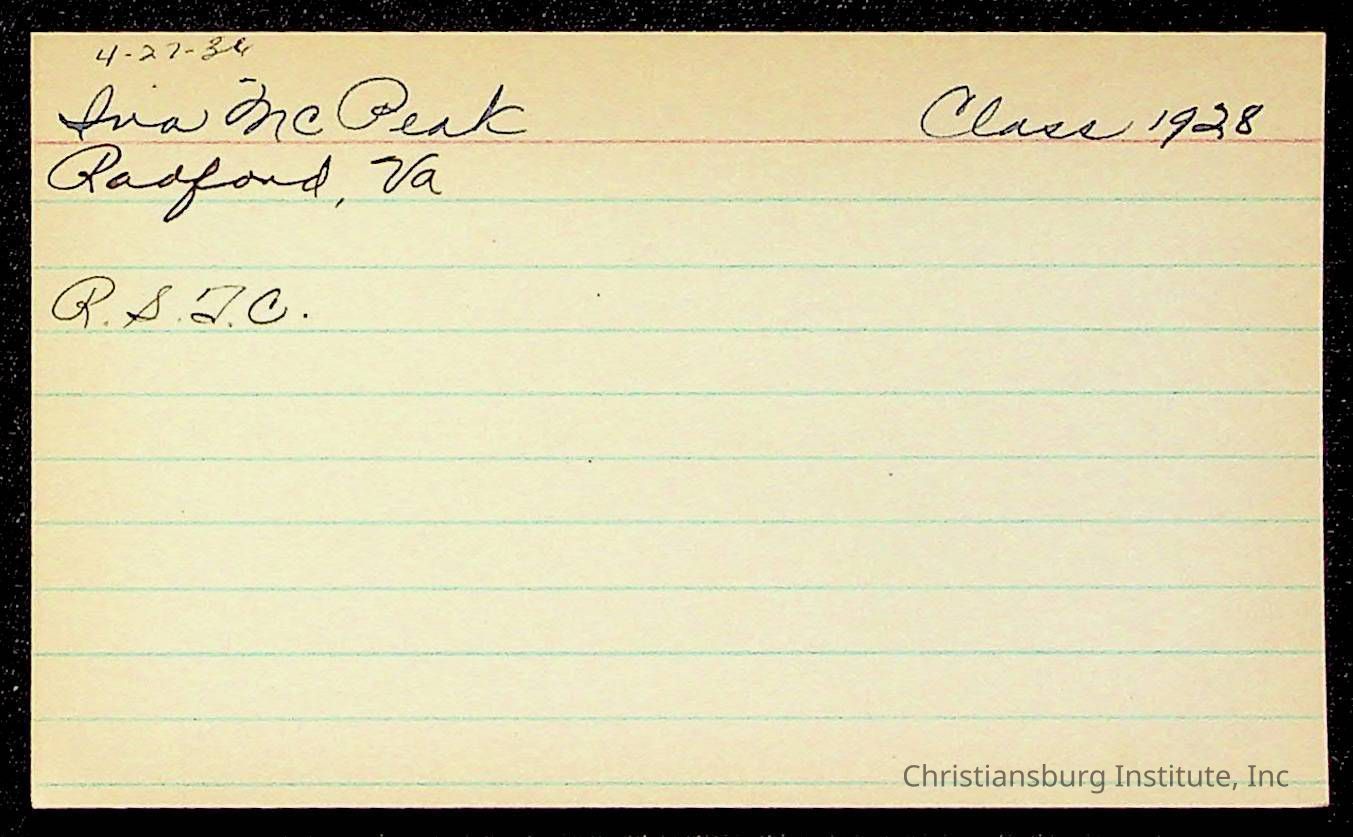 4-27-36
Iva McPeak Class 1928
Radford, Va
R.S.T.C.
Christiansburg Institute, Inc